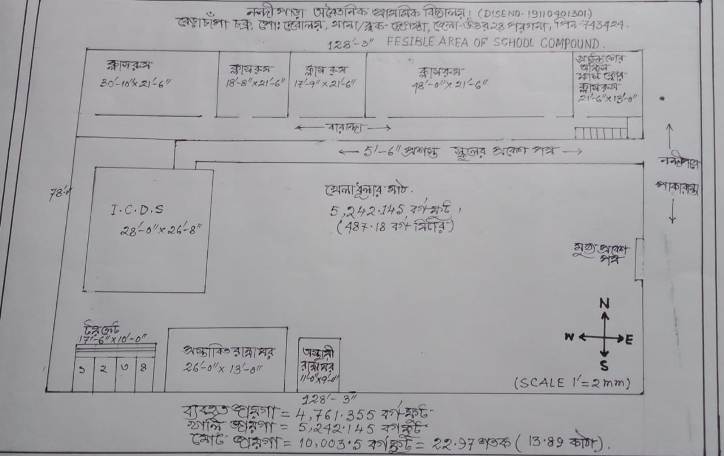 নন্দীপাড়া অবৈতনিক প্রাথমিক বিদ্যালয়। (DISENO-19110401301)
বেড়াচাঁপা চক্র, পোঃ দেবালয়, থানা/ব্লক-দেগঙ্গা, জেলা-উত্তর ২৪ পরগনা, পিন-743424.
128'-3" FESIBLE AREA OF SCHOOL COMPOUND.
ক্লাসরুম
30'-10"×21'-6"
ক্লাসরুম
18'-8"×21'-6"
ক্লাস রুম
17'-9"×21'-6"
ক্লাসরুম
48'-0"×21'-6"
অফিস
ক্লাসরুম
21'-6"×13'-0"
বারান্দা
5'-6" প্রশস্ত স্কুলের প্রবেশ পথ
78'-0"
I.C.D.S
28'-0"×26'-8"
খেলাধুলার মাঠ.
5,242.145 বর্গফুট,
(487.18 বর্গ মিটার)
নন্দীপাড়া
পাকা রাস্তা
মুখ্য প্রবেশ
পথ
টয়লেট
17'-6"×10'-0"
১ ২ ৩ ৪
প্রস্তাবিত রান্নাঘর
26'-0"×13'-0"
অস্থায়ী
রান্নাঘর
11'-0"×9'-0"
N
W E
S
(SCALE 1'=2mm)
128'-3"
ব্যবহৃত জায়গা = 4,761.355 বর্গফুট
খালি জায়গা = 5,242.145 বর্গফুট
মোট জায়গা = 10,003.5 বর্গফুট = 22.97 শতক (13.89 কাঠা).